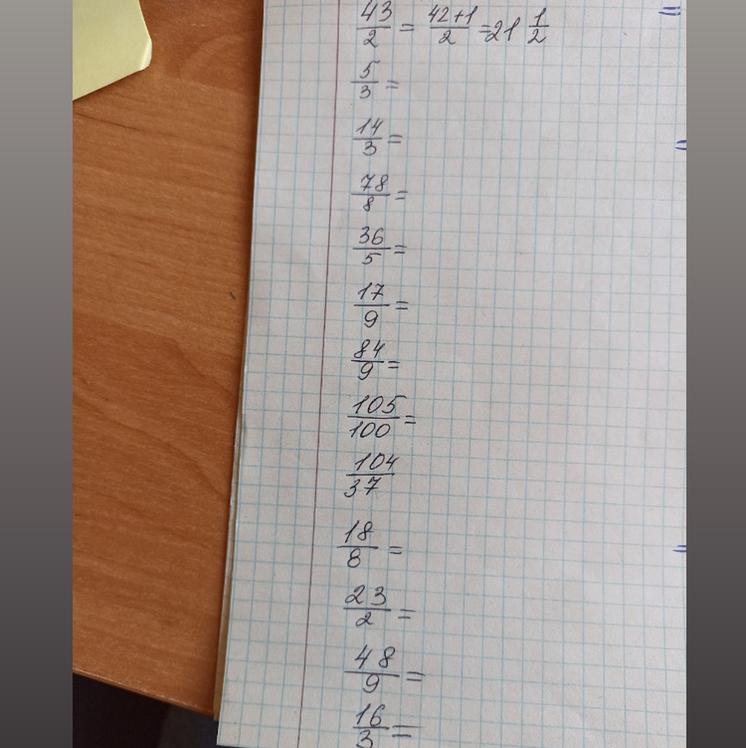 43/2 = 42+1/2 = 21 1/2
5/3 =
14/3 =
78/8 =
36/5 =
17/9 =
84/9 =
105/100 =
104/37
18/8 =
23/2 =
48/9 =
16/3 =